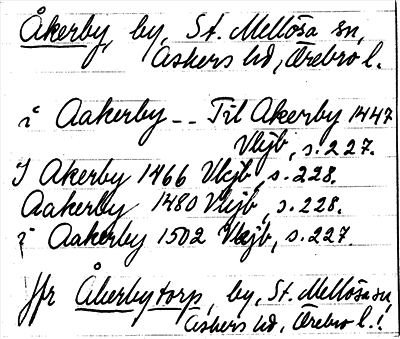 Åkerby, by, St. Mellösa sn,
Askers hd, Örebro l.
i Aakerby -- Til Akerby 1447
Vkjb, s. 227.
I Akerby 1466 Vkjb, s. 228.
Aakerby 1480 Vkjb, s. 228.
i Aakerby 1502 Vkjb, s. 227.
Jfr Åkerbytorp, by, St. Mellösa sn,
Askers hd, Örebro l.!